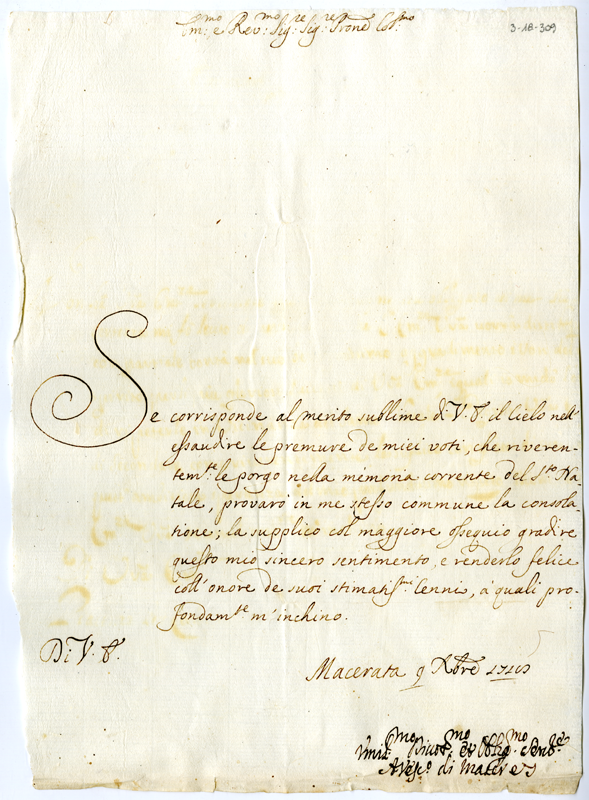 Em:mo e Rev:mo Sig:re Sig:re Prone Col:mo
3-18-309
Se corrisponde al merito sublime di V. E. il Cielo nell'
essaudire le premure de miei voti, che riveren-
tem:te le porgo nella memoria corrente del S:to Na-
tale, provarò in me stesso commune la consola-
tione; la supplico col maggiore ossequio gradire
questo mio sincero sentimento, e renderlo felice
coll'onore de suoi stimatiss:mi Cenni, a' quali pro-
fondam:te m'inchino.
Di V. E.
Macerata 9 Xbre
Umil:mo Divot:mo et Oblig:mo Serv:re
A Vesc:o di